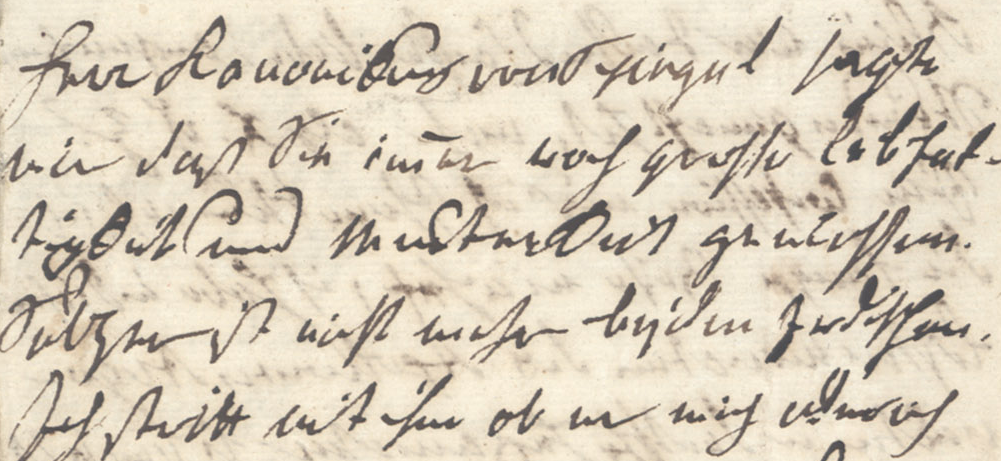 Herr Kanonikus von Spiegel sagte
mir daß Sie im̅er noch grosse Lebhaf-
tigkeit und Munterkeit geniessen.
Sulzer ist nicht mehr bey den Irdischen.
Ich stritt mit ihm ob er mich oder ich